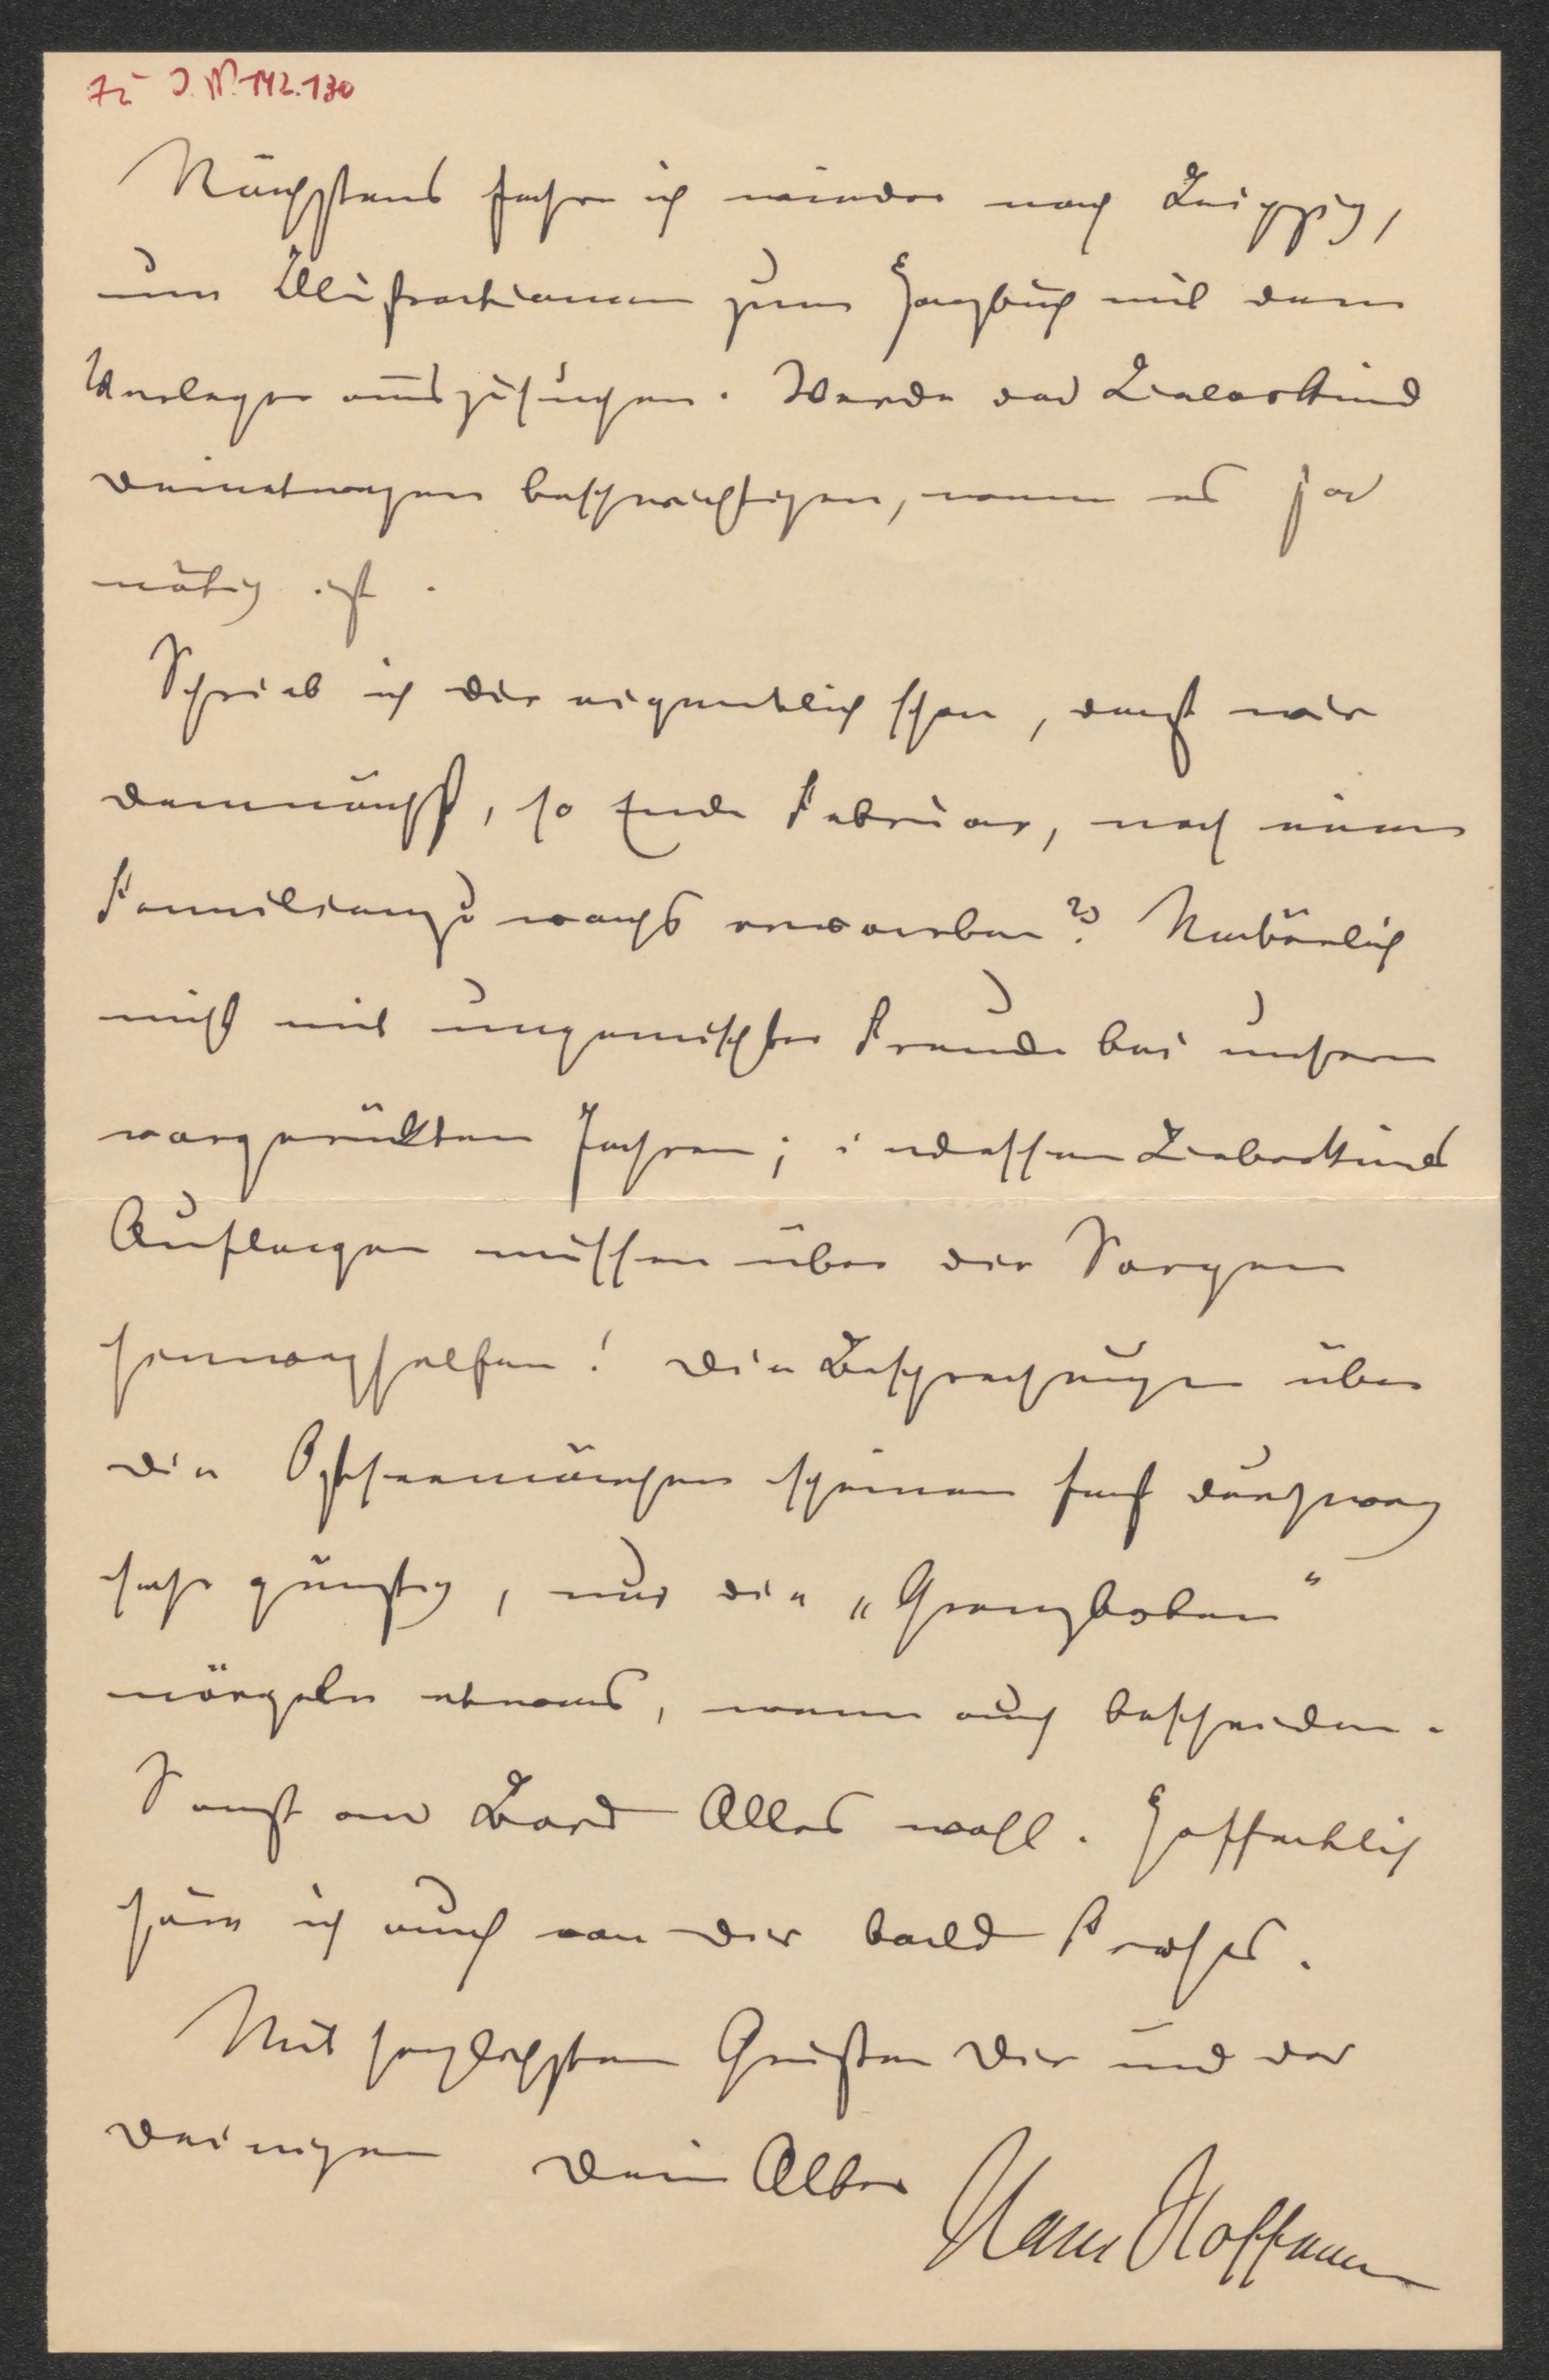 72 I.N. 142.130
Nächstens fahre ich wieder nach Leipzig,
um Illustrationen zum Harzbuch mit dem
Verleger auszusuchen. Werde das Liebeskind
deinetwegen beschwichtigen, wenn es ja
nötig ist.
Schrieb ich dir eigentlich schon, daß wir
demnächst, so Ende Februar, noch einen
Familienzuwachs erwarten? Natürlich
nicht mit ungemischter Freude bei unsern
vorgerückten Jahren; indessen Liebeskinds
Auflagen müssen über die Sorgen
hinweghelfen! Die Besprechungen über
die Ostseemärchen scheinen fast durchweg
sehr günstig, nur die „Grenzboten“
nörgeln etwas, wenn auch bescheiden.
Sonst an Bord Alles wohl. Hoffentlich
höre ich auch von dir bald Frohes.
Mit herzlichsten Grüßen dir und den
deinigen dein Alter Hans Hoffmann